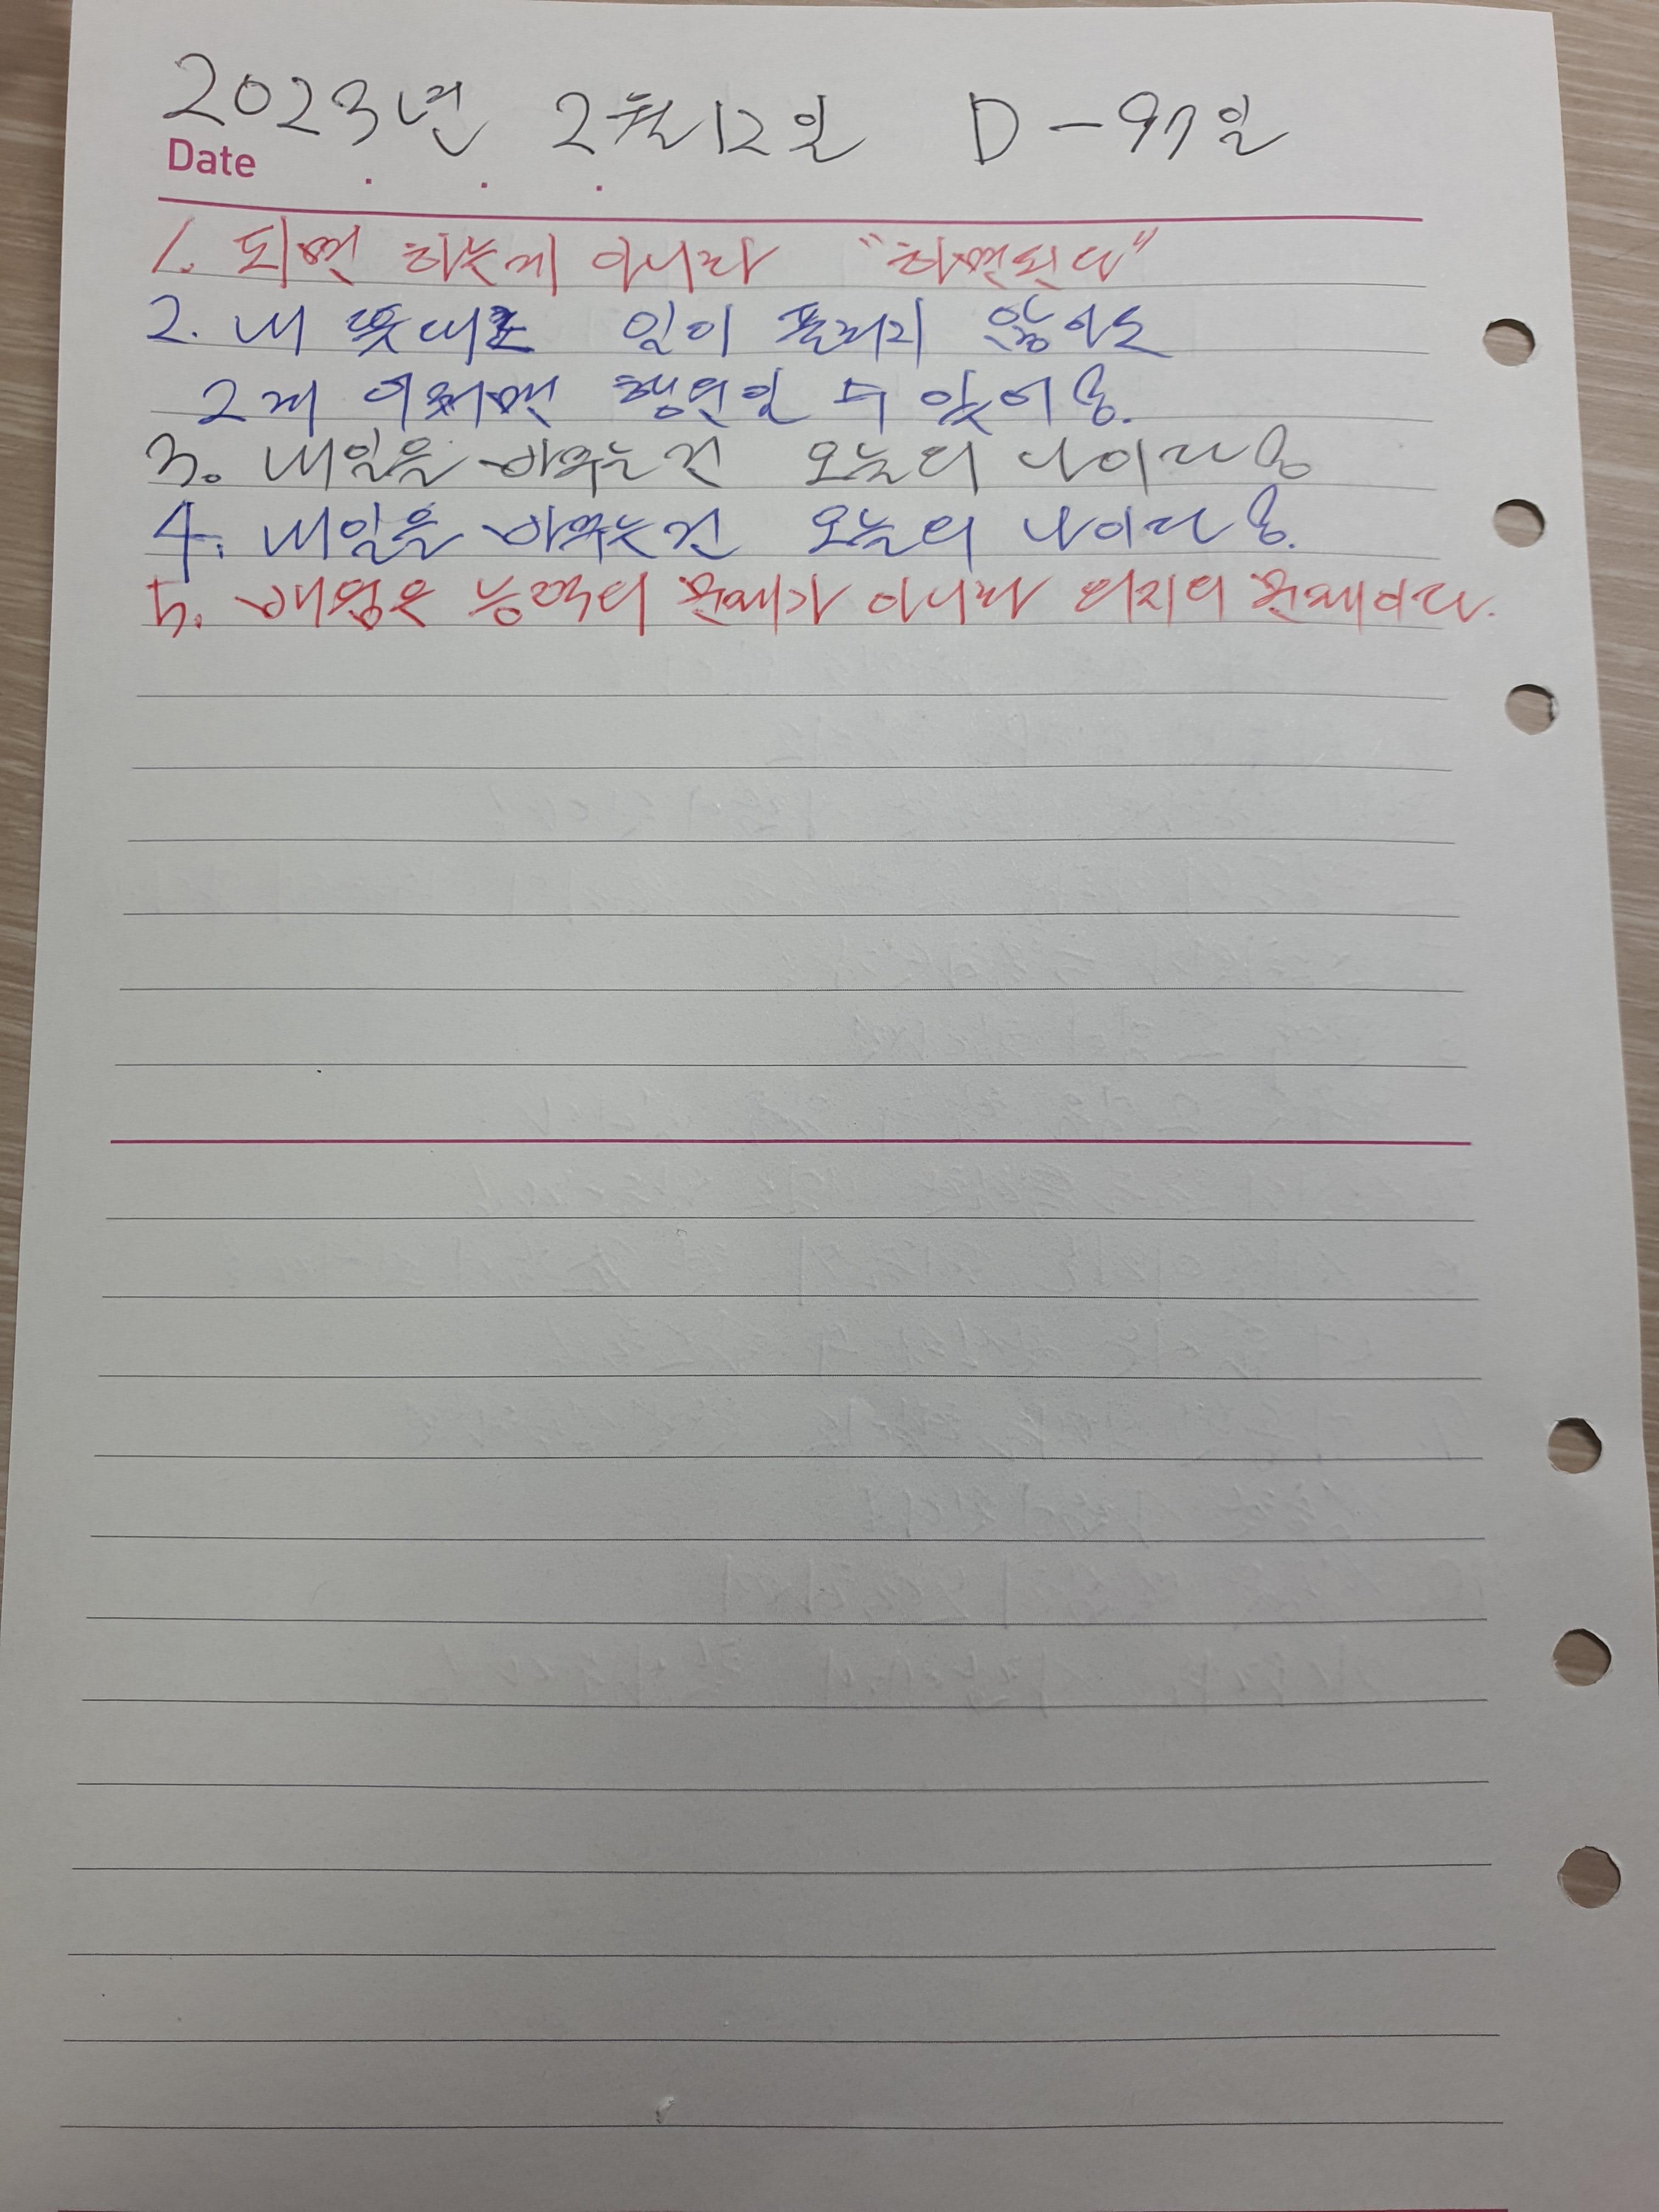 2023년 2월 12일 D-97일
Date . . .
1. 되면 하는게 아니라 "하면된다"
2. 내 뜻대로 일이 풀리지 않아도
그게 어쩌면 행운일 수 있어용.
3. 내일을 바꾸는건 오늘의 나이다용
4. 내일을 바꾸는건 오늘의 나이다용.
5. 배움은 능력의 문제가 아니라 의지의 문제이다.